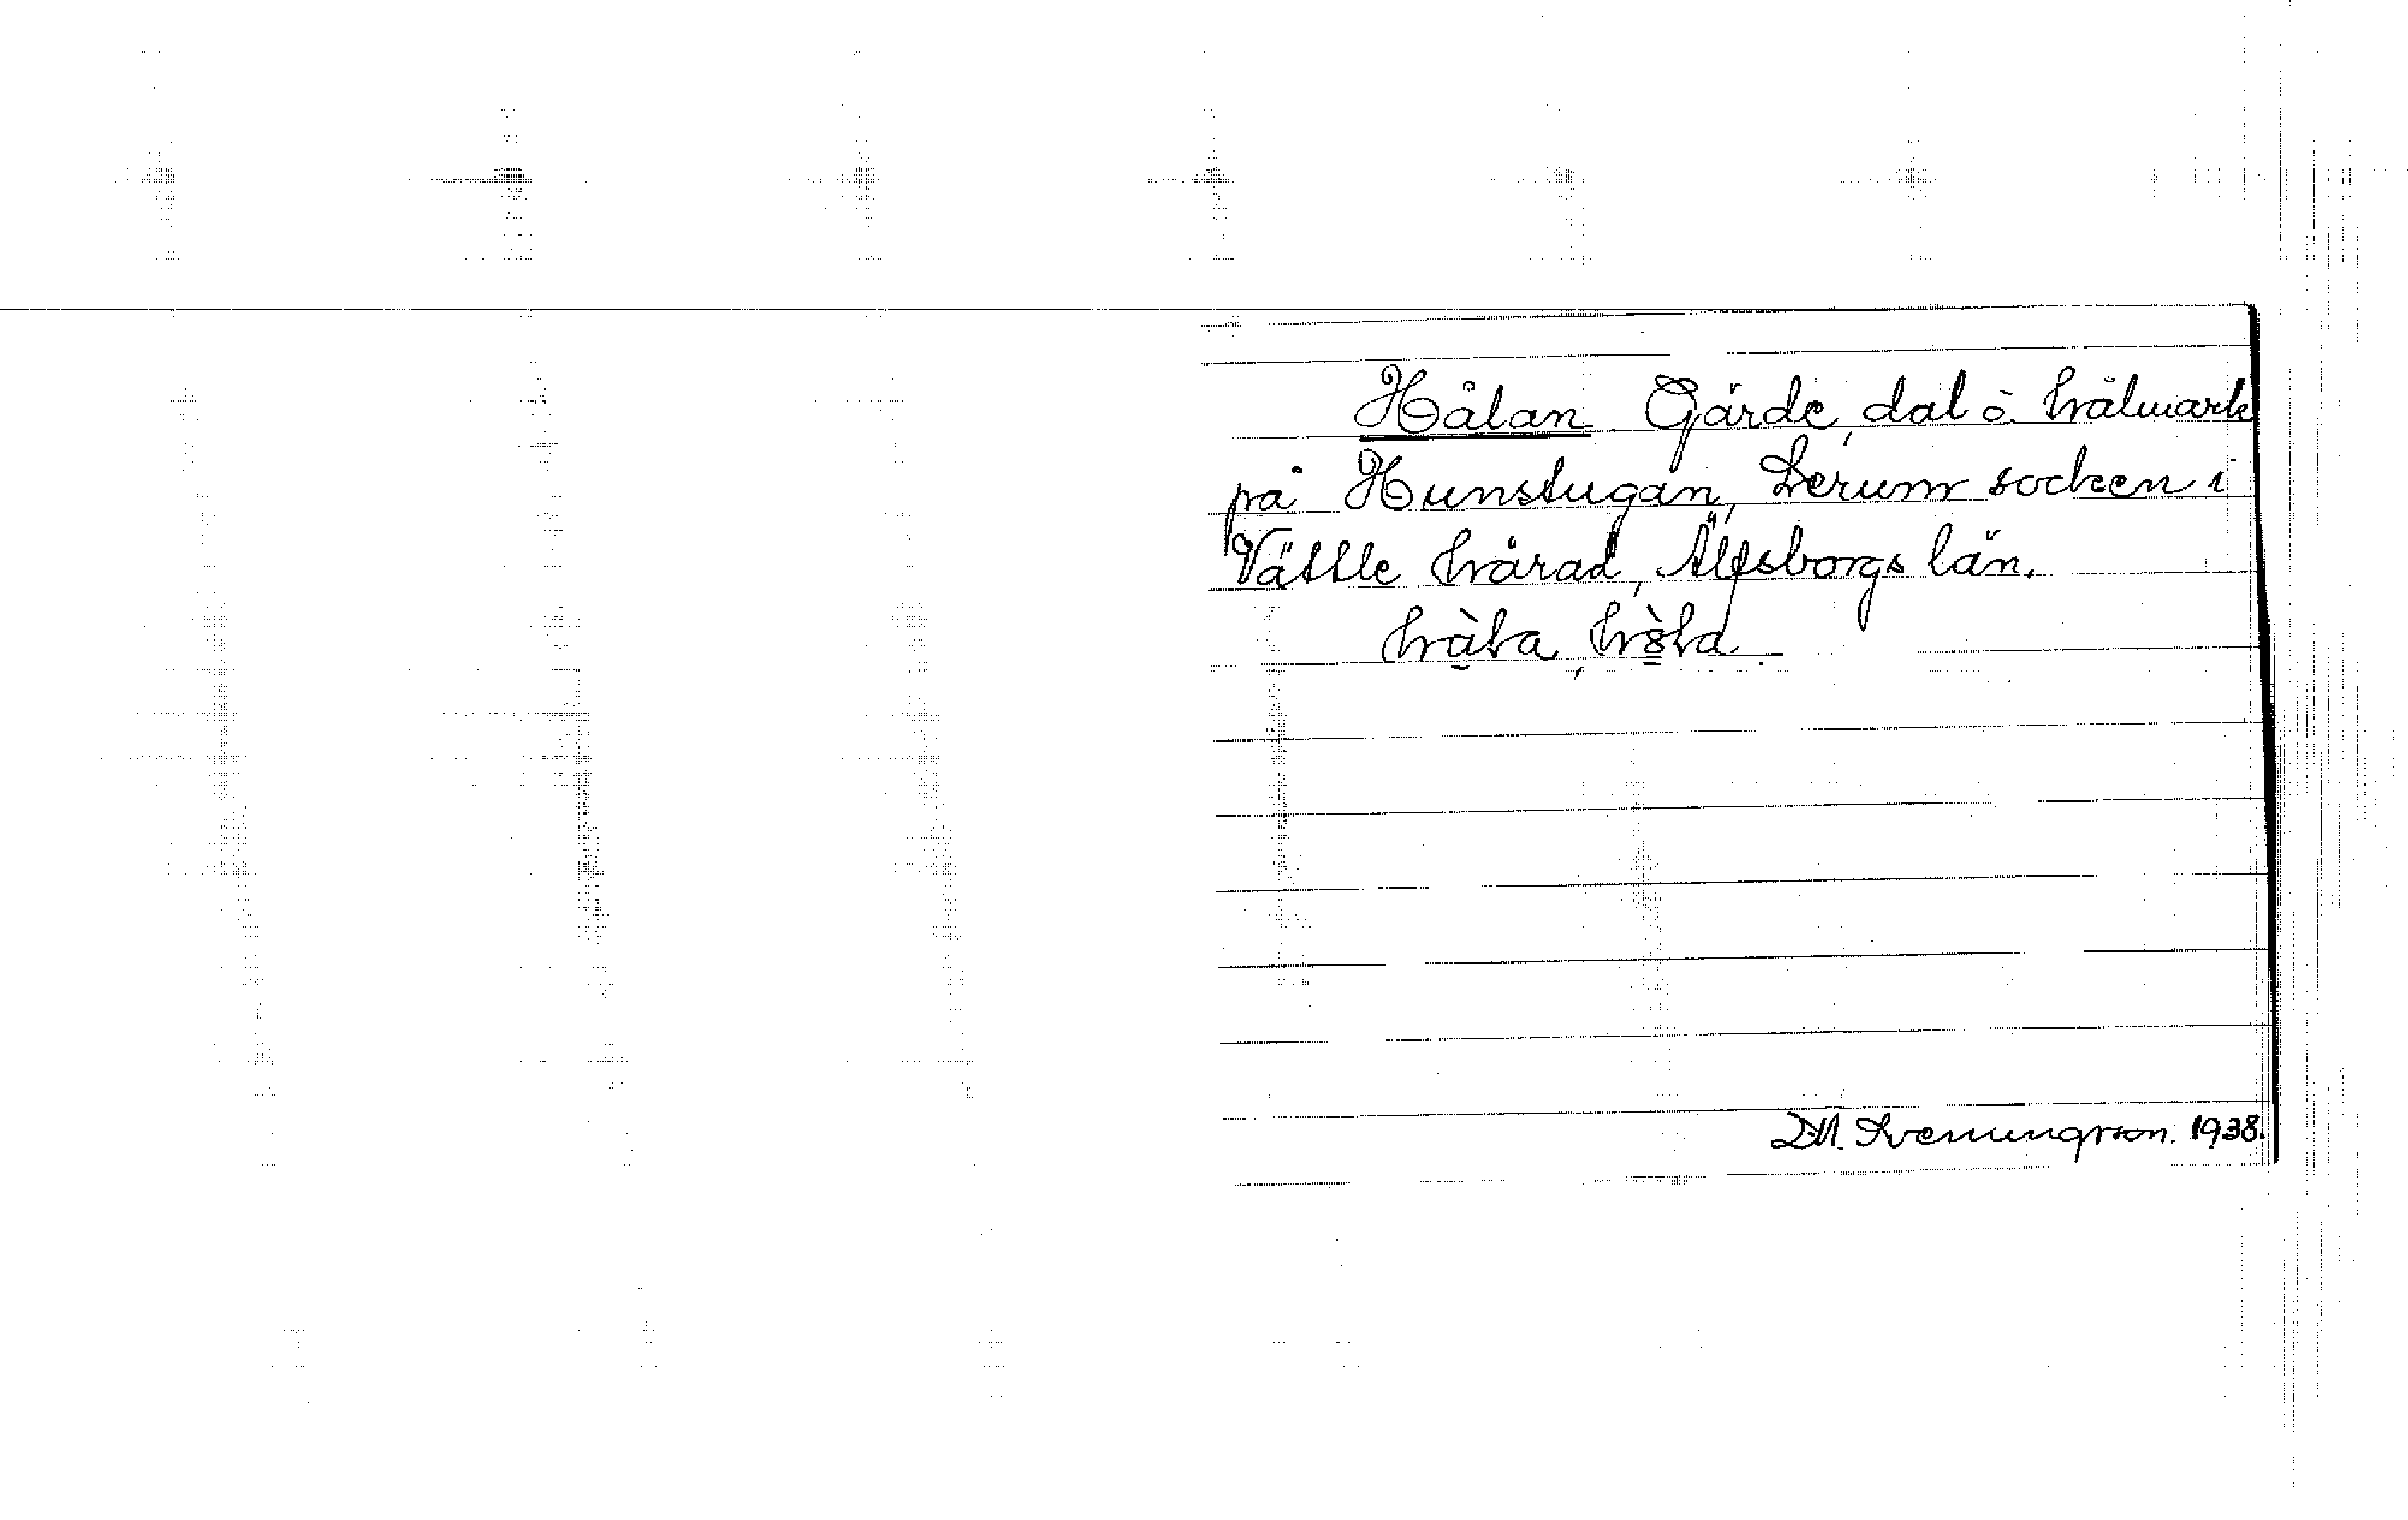 Hålan Gärde, dal o. hålmark
på Hunstugan, Lerum socken i
Vättle härad, Älfsborgs län.
D.M. Svenungsson. 1938.